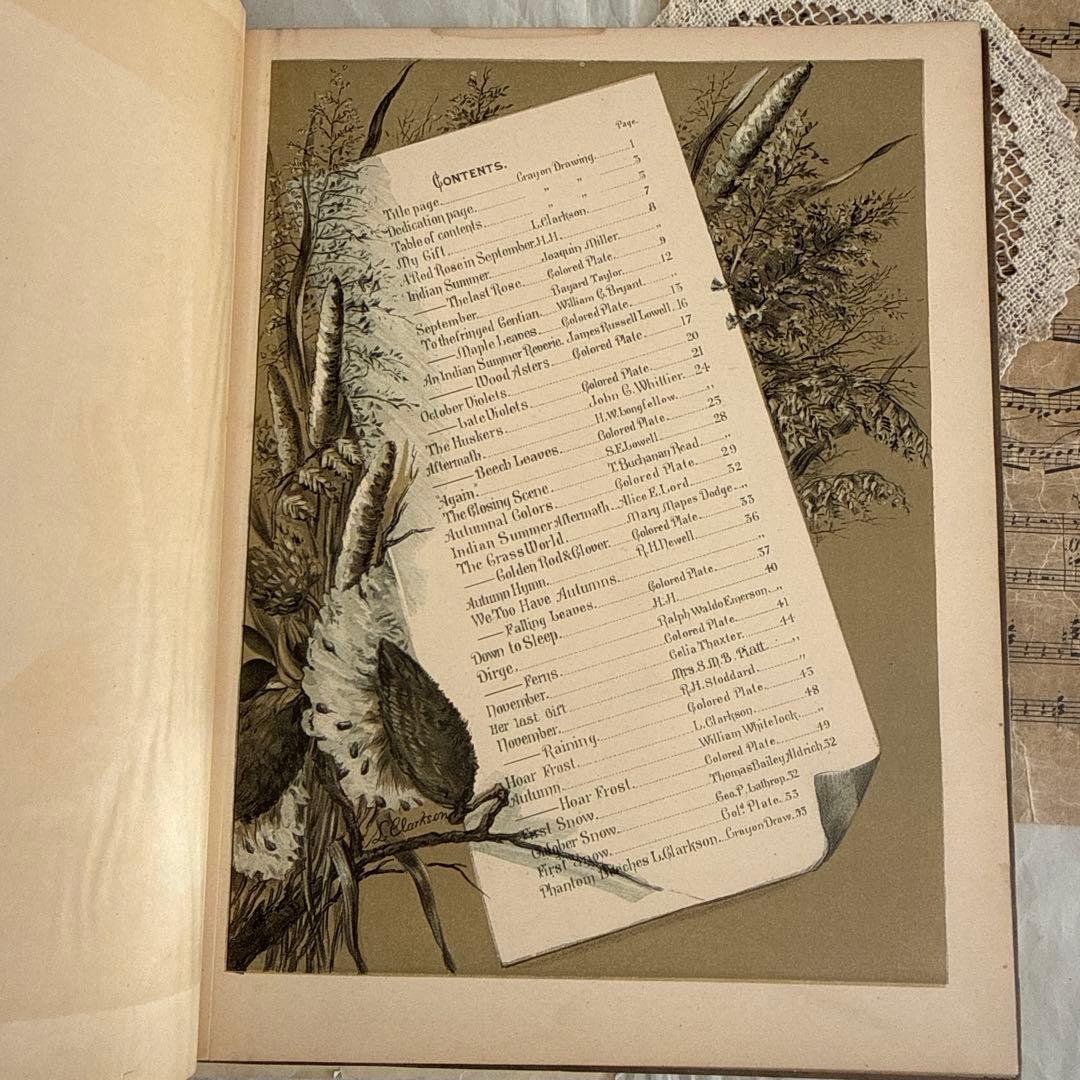 Page.
CONTENTS.
Title page. Crayon Drawing. 1
Dedication page. " " 3
Table of contents. " " 5
My Gift. L. Clarkson. 7
A Red Rose in September. H.H. 8
Indian Summer. Joaquin Miller. "
— The last Rose. Colored Plate. 9
September. Bayard Taylor. 12
To the fringed Gentian. William C. Bryant. "
— Maple Leaves. Colored Plate. 13
An Indian Summer Reverie. James Russell Lowell. 16
— Wood Asters. Colored Plate. 17
October Violets. 20
— Late Violets. Colored Plate. 21
The Huskers. John G. Whittier. 24
Aftermath. H.W. Longfellow. "
— Beech Leaves. Colored Plate. 25
"Again." S.E. Lowell. 28
The Closing Scene. T. Buchanan Read. "
Autumnal Colors. Colored Plate. 29
Indian Summer Aftermath. Alice E. Lord. 32
The Grass World. Mary Mapes Dodge. "
— Golden Rod & Clover. Colored Plate. 33
Autumn Hymn. R.H. Newell. 36
We Too Have Autumns. "
— Falling Leaves. Colored Plate. 37
Down to Sleep. H.H. 40
Dirge. Ralph Waldo Emerson. "
— Ferns. Colored Plate. 41
November. Celia Thaxter. 44
Her last Gift. Mrs. S.M.B. Piatt. "
November. R.H. Stoddard. "
— Raining. Colored Plate. 45
Hoar Frost. L. Clarkson. 48
Autumn. William Whitelock. "
— Hoar Frost. Colored Plate. 49
First Snow. Thomas Bailey Aldrich. 52
October Snow. Geo. P. Lathrop. 52
First Snow. Col.d Plate. 53
Phantom Beeches L. Clarkson. Crayon Draw. 55
L. Clarkson